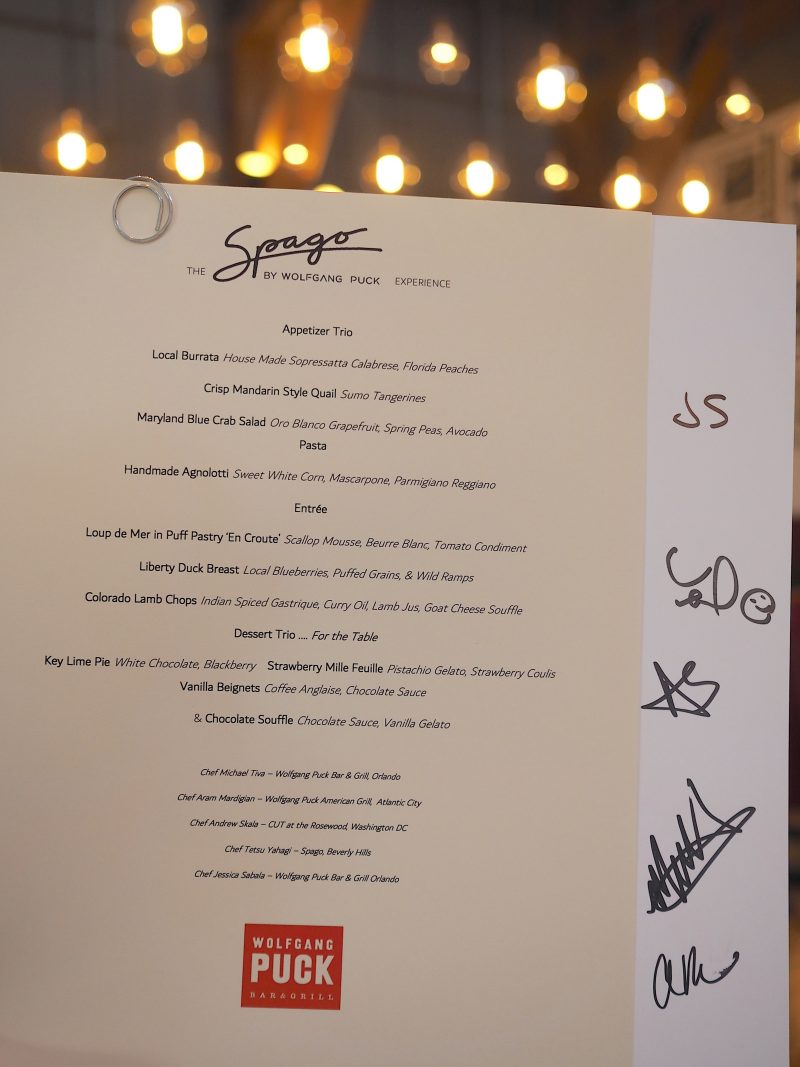 THE Spago BY WOLFGANG PUCK EXPERIENCE
Appetizer Trio
Local Burrata House Made Sopressatta Calabrese, Florida Peaches
Crisp Mandarin Style Quail Sumo Tangerines
Maryland Blue Crab Salad Oro Blanco Grapefruit, Spring Peas, Avocado
Pasta
Handmade Agnolotti Sweet White Corn, Mascarpone, Parmigiano Reggiano
Entrée
Loup de Mer in Puff Pastry ‘En Croute’ Scallop Mousse, Beurre Blanc, Tomato Condiment
Liberty Duck Breast Local Blueberries, Puffed Grains, & Wild Ramps
Colorado Lamb Chops Indian Spiced Gastrique, Curry Oil, Lamb Jus, Goat Cheese Souffle
Dessert Trio .... For the Table
Key Lime Pie White Chocolate, Blackberry Strawberry Mille Feuille Pistachio Gelato, Strawberry Coulis
Vanilla Beignets Coffee Anglaise, Chocolate Sauce
& Chocolate Souffle Chocolate Sauce, Vanilla Gelato
Chef Michael Tiva – Wolfgang Puck Bar & Grill, Orlando
Chef Aram Mardigian – Wolfgang Puck American Grill, Atlantic City
Chef Andrew Skala – CUT at the Rosewood, Washington DC
Chef Tetsu Yahagi – Spago, Beverly Hills
Chef Jessica Sabala – Wolfgang Puck Bar & Grill Orlando
WOLFGANG
PUCK
BAR & GRILL
JS
AS